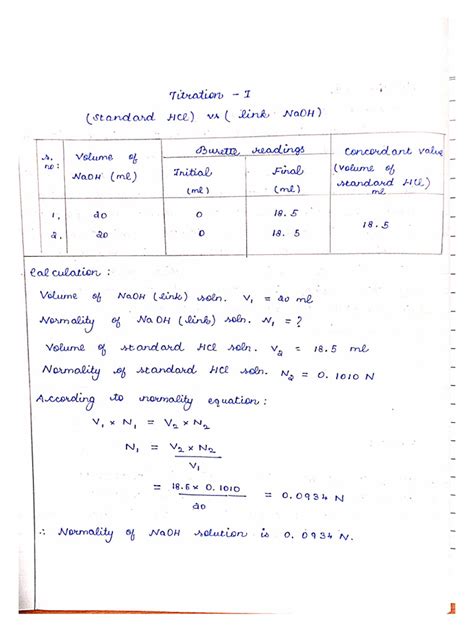 Titration - I
(standard HCl) vs (link NaOH)
s. no: Volume of NaOH (ml) Burette readings Concordant value (volume of standard HCl) ml
Initial (ml) Final (ml)
1. 20 0 18.5 18.5
2. 20 0 18.5
Calculation :
Volume of NaOH (link) soln. V₁ = 20 ml
Normality of NaOH (link) soln. N₁ = ?
Volume of standard HCl soln. V₂ = 18.5 ml
Normality of standard HCl soln. N₂ = 0.1010 N
According to normality equation :
V₁ x N₁ = V₂ x N₂
N₁ = V₂ x N₂ / V₁
= 18.5 x 0.1010 / 20 = 0.0934 N
∴ Normality of NaOH solution is 0.0934 N.